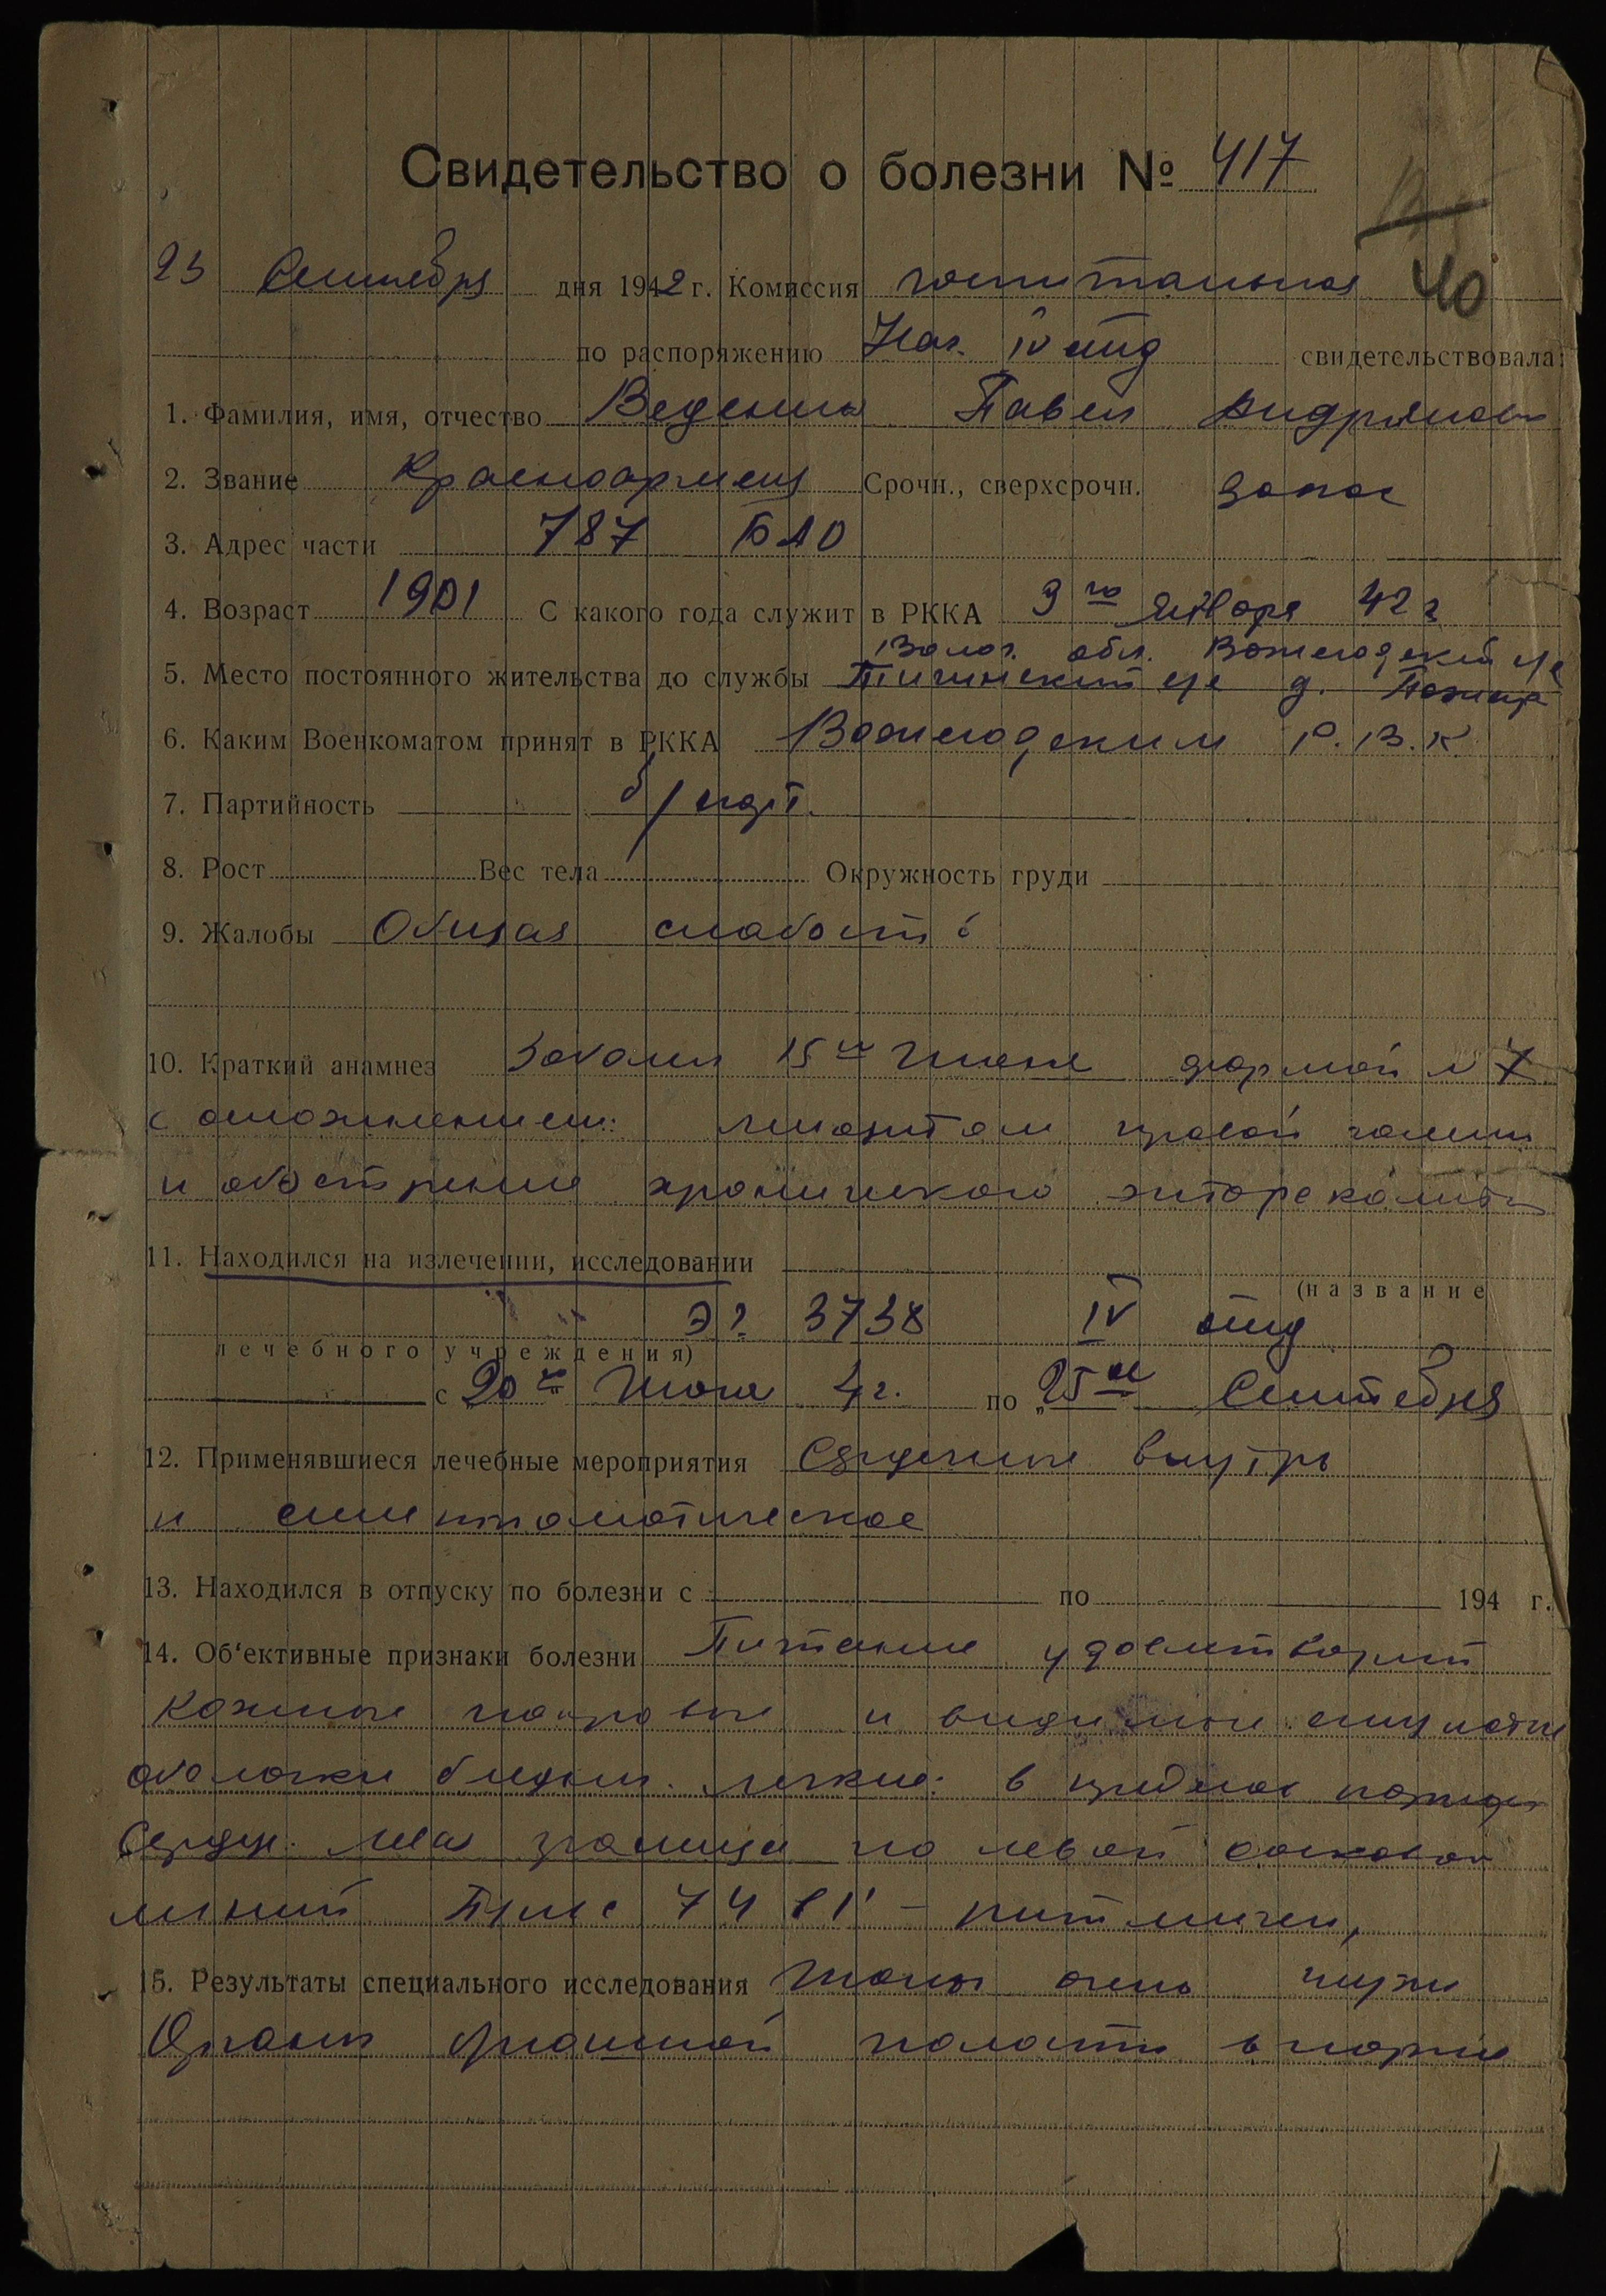 Свидетельство о болезни № 417
40
23 Сентября дня 1942 г. Комиссия госпитальная
по распоряжению Нач. IV отд свидетельствовала:
1. Фамилия, имя, отчество Веденин Павел Андрянов
2. Звание Красноармеец Срочн., сверхсрочн. запас
3. Адрес части 787 БАО
4. Возраст 1901 С какого года служит в РККА 9 го Января 42 г
Волог. обл. Вожегодский
5. Место постоянного жительства до службы д.
6. Каким Военкоматом принят в РККА Вожегодским Р.В.К
7. Партийность б/парт.
8. Рост Вес тела Окружность груди
9. Жалобы Общая слабость
10. Краткий анамнез Заболел 15 го Июня формой N 7
с осложнением: правой голени
и обострение хронического энтероколита
11. Находился на излечении, исследовании
(название
ЭГ 3738 IV отд
лечебного учреждения)
с 20 го Июня 42. по 25 ое Сентября
12. Применявшиеся лечебные мероприятия Сердечные внутрь
и симптоматическое
13. Находился в отпуску по болезни с по 194 г.
14. Об‘ективные признаки болезни Питание удовлетворит
Кожные покровы и видимые слизистые
оболочки бледны. легкие: в пределах нормы
Сердце. левая граница по левой сосковой
линии Пульс 74 в 1' – ритмичен,
15. Результаты специального исследования Тоны
Органы брюшной полости в норме